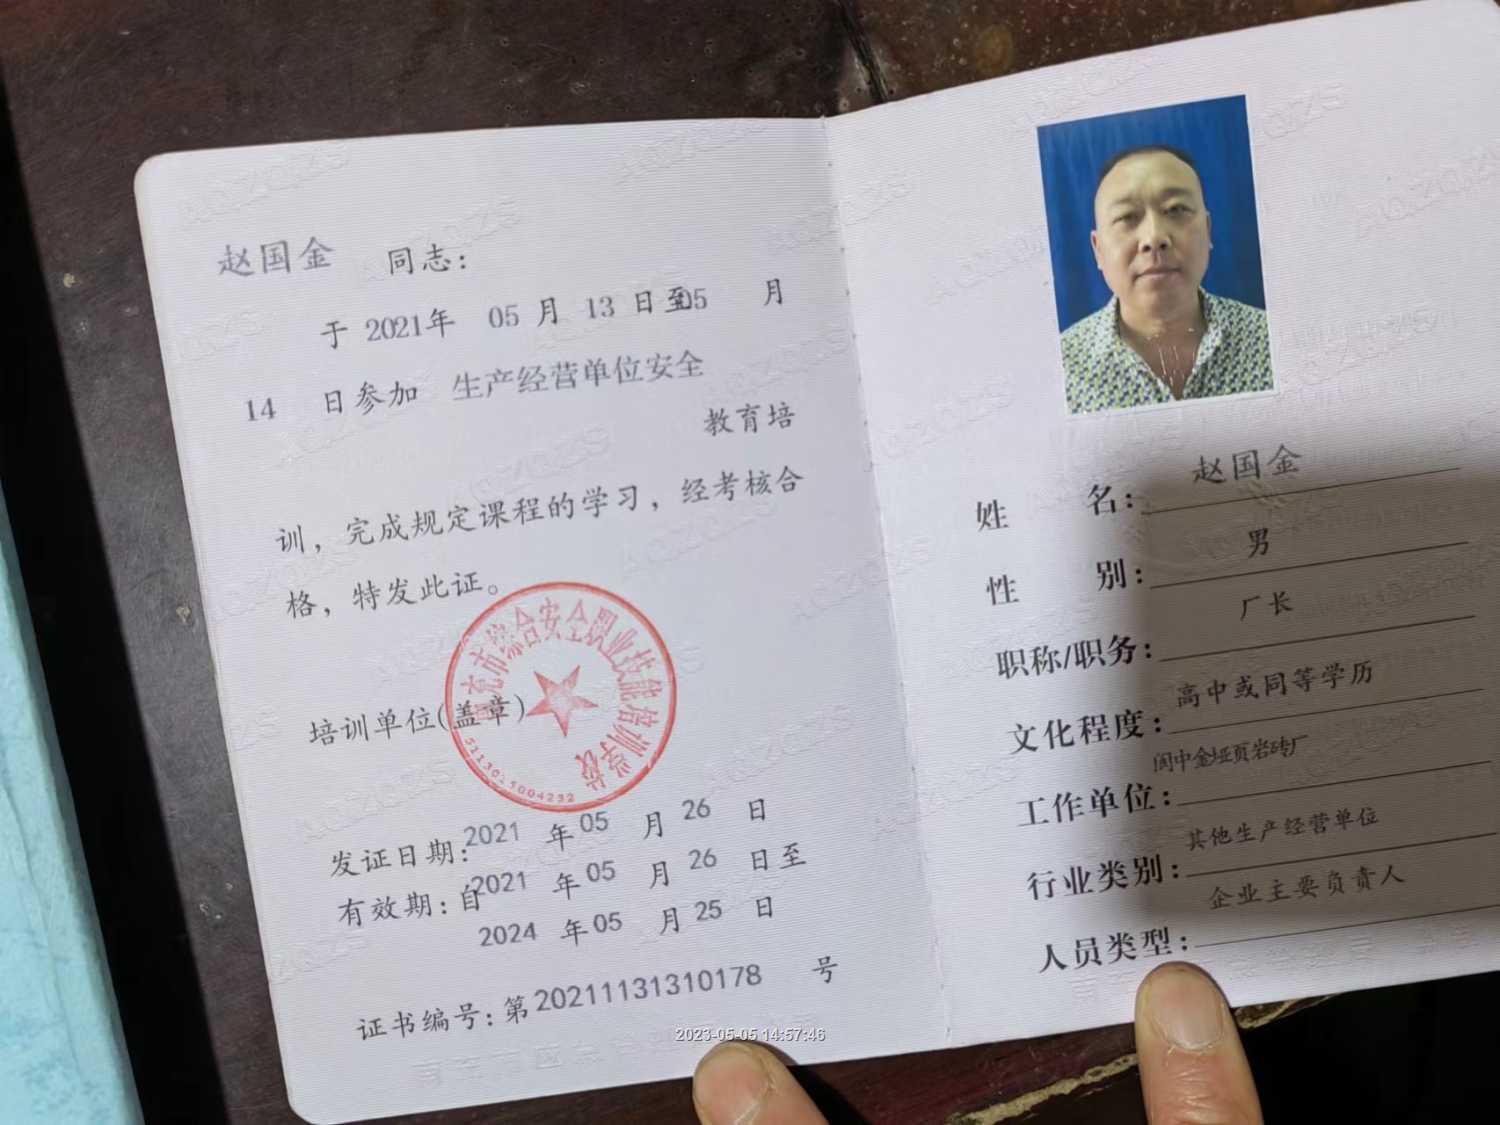 赵国金 同志：
于 2021年 05 月 13 日至05 月
14 日参加 生产经营单位安全
教育培
训，完成规定课程的学习，经考核合
格，特发此证。
培训单位(盖章)
充市综合安全职业技能培训学校
5113025004232
发证日期：2021 年05 月 26 日
有效期：自2021 年05 月 26 日至
2024 年05 月25 日
证书编号：第20211131310178 号
姓 名：赵国金
性 别：男
职称/职务：厂长
文化程度：高中或同等学历
工作单位：阆中金垭页岩砖厂
行业类别：其他生产经营单位
人员类型：企业主要负责人
AQZQZS
2023-05-05 14:57:46